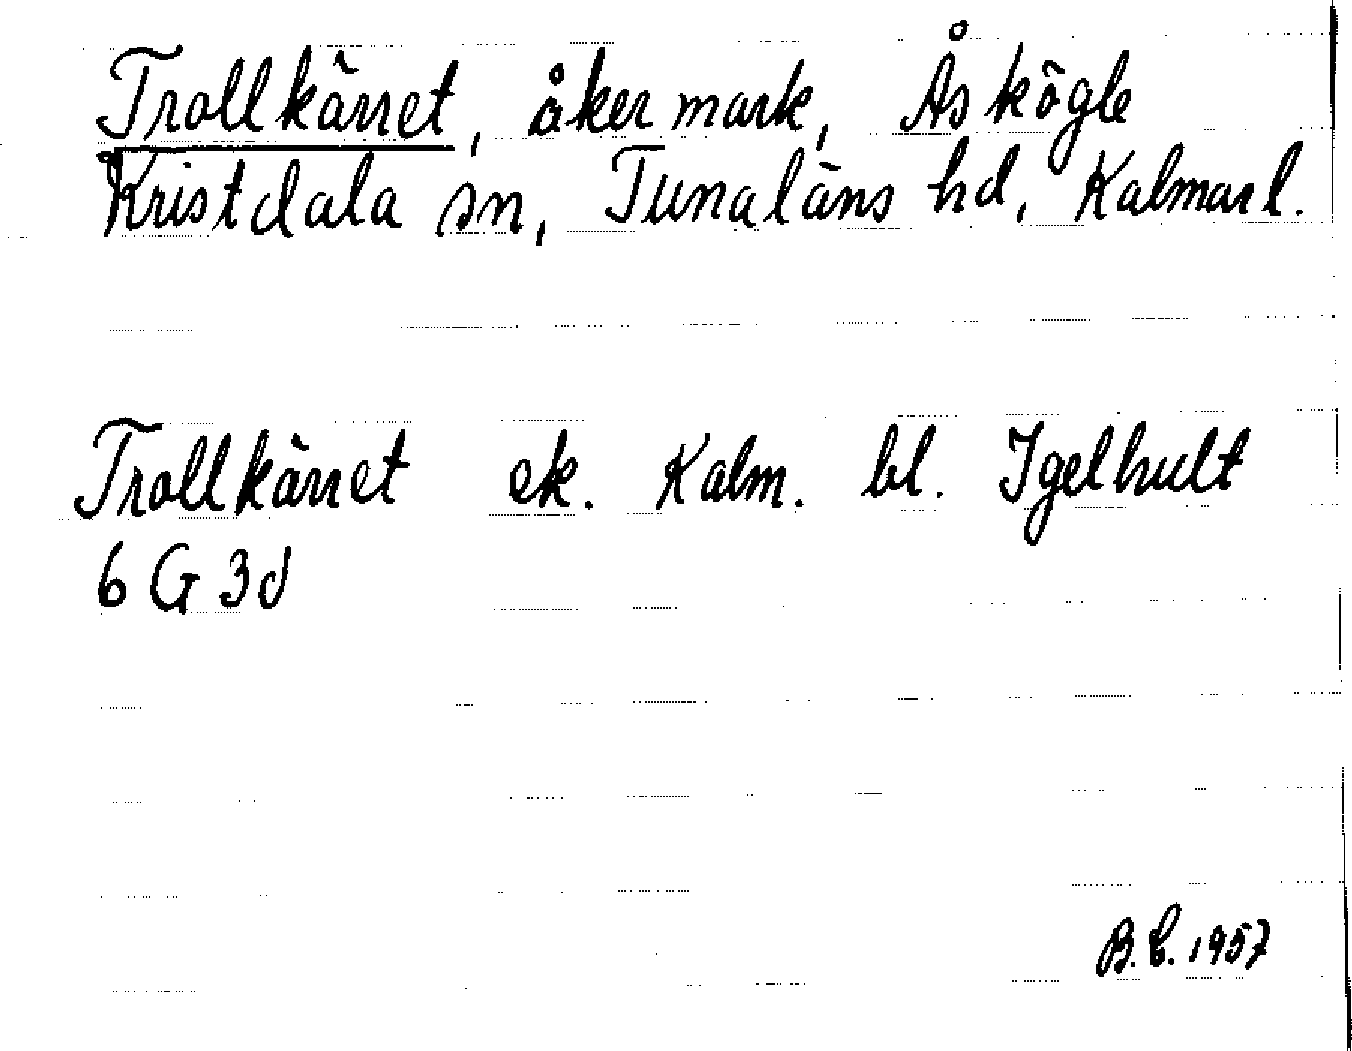 Trollkärret, åkermark, Åskögle
Kristdala sn, Tunaläns hd, Kalmar l.
Trollkärret ek. Kalm. bl. Igelhult
6 G 3d
B.C. 1957